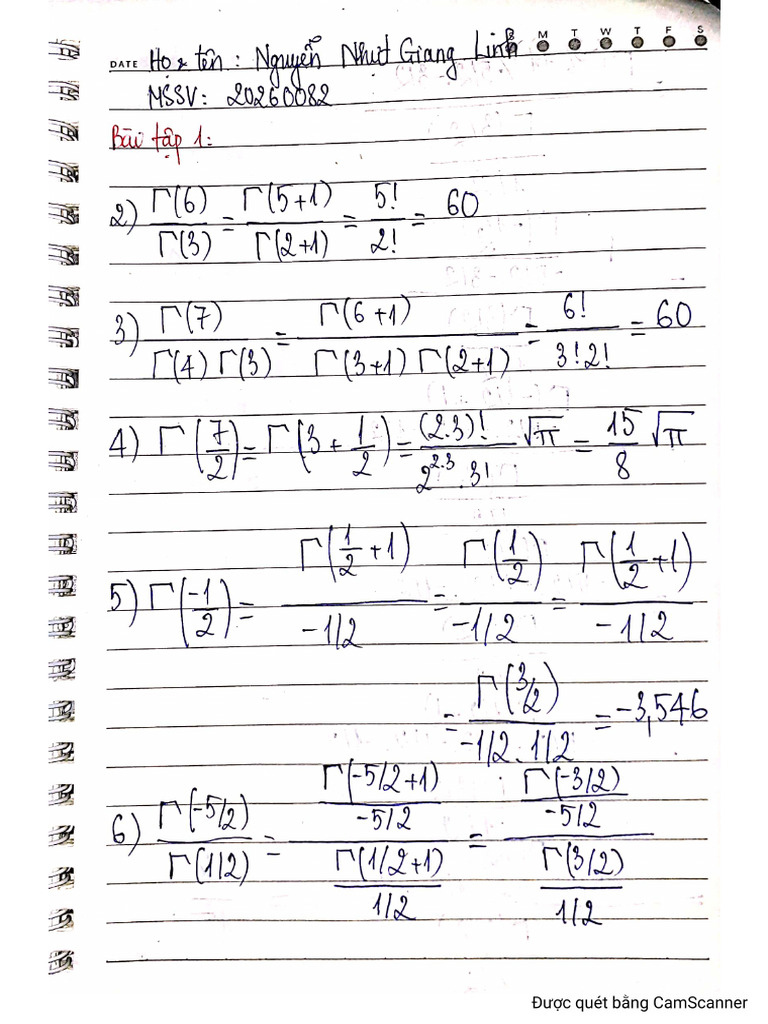 DATE Họ & tên : Nguyễn Như Giang Linh M T W T F S
MSSV: 20260082
Bài tập 1:
2) Γ(6)/Γ(3) = Γ(5+1)/Γ(2+1) = 5!/2! = 60
3) Γ(7)/(Γ(4) Γ(3)) = Γ(6+1)/(Γ(3+1) Γ(2+1)) = 6!/(3!2!) = 60
4) Γ(7/2) = Γ(3 + 1/2) = (2.3)!/(2^2.3 . 3!) √π = 15/8 √π
5) Γ(-1/2) = Γ(1/2 + 1)/(-1/2) = Γ(1/2)/(-1/2) = Γ(1/2 + 1)/(-1/2)
= Γ(3/2)/(-1/2 . 1/2) = -3,546
6) Γ(-5/2)/Γ(1/2) = (Γ(-5/2+1)/(-5/2))/(Γ(1/2+1)/(1/2)) = (Γ(-3/2)/(-5/2))/(Γ(3/2)/(1/2))
Được quét bằng CamScanner